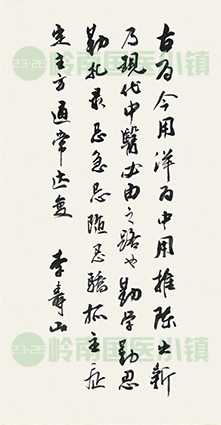 古为今用洋为中用推陈出新
乃現代中醫必由之路也勤学勤思
勤札录忌急忌随忌驕抓主症
定主方通常达变 李寿山
23·26 岭南国医小镇
23·26 岭南国医小镇